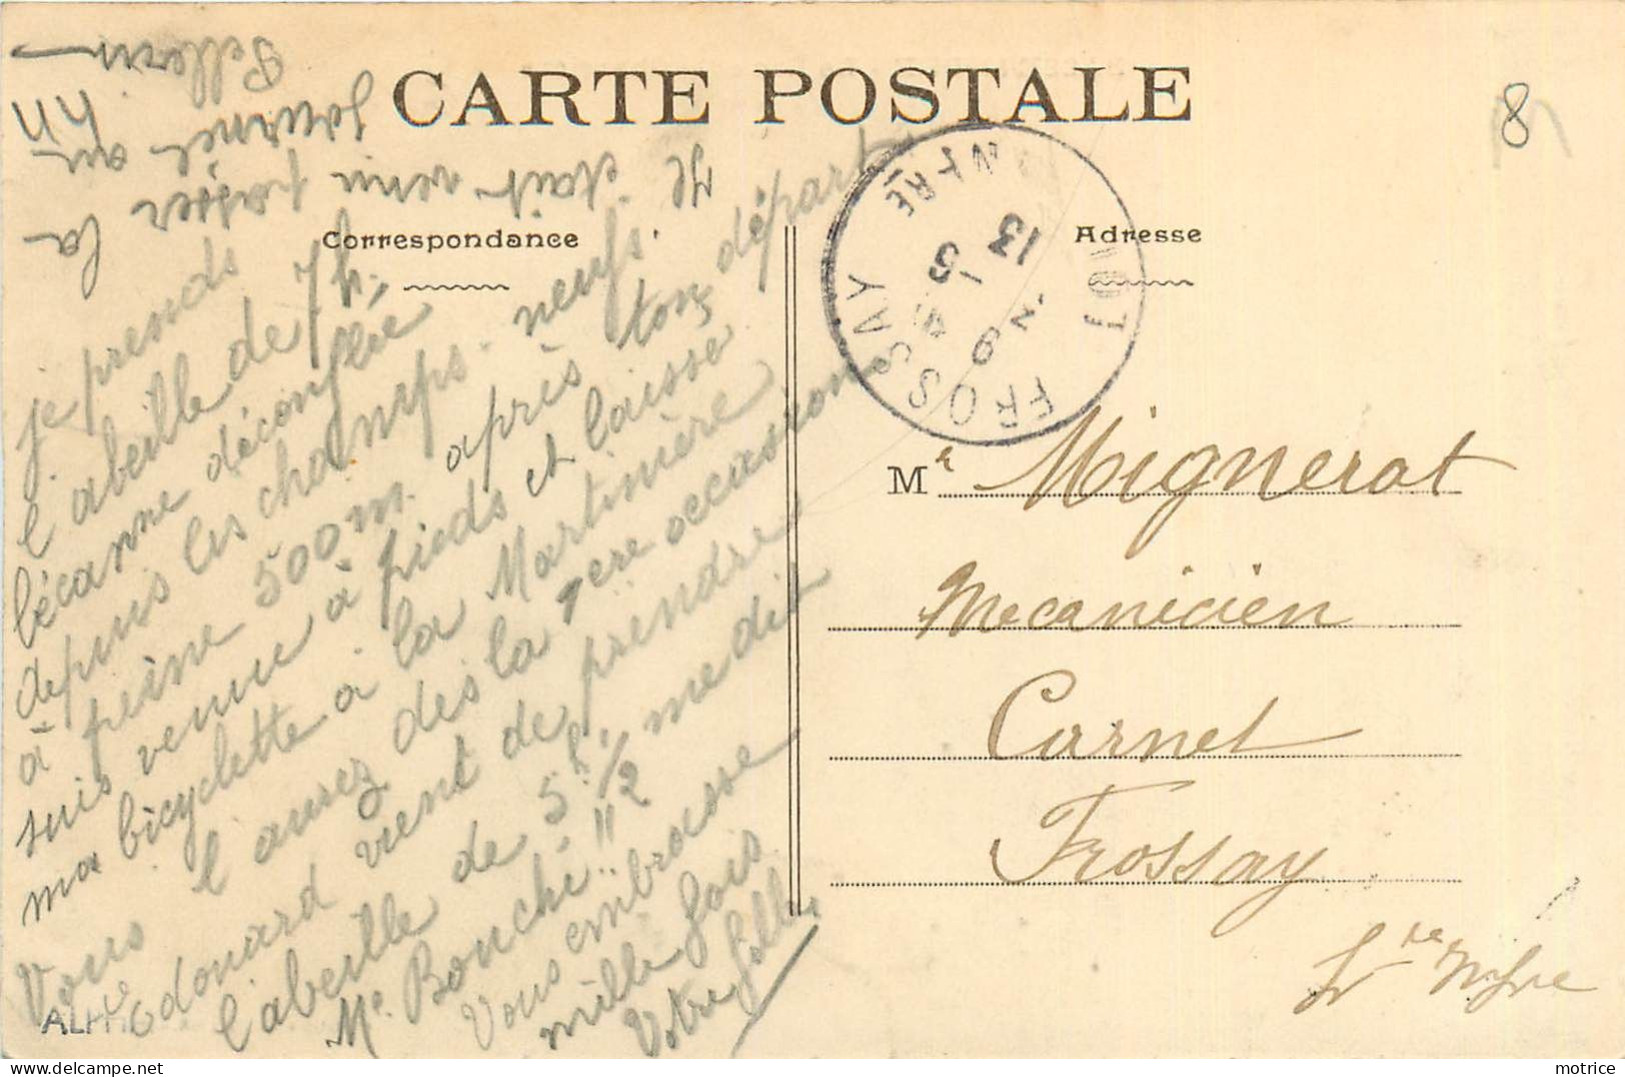 CARTE POSTALE
Correspondance
Adresse
je prends
l'abeille de 7h.
bécanne déconflée
depuis les champs neufs.
à peine 500m. après ton départ
suis venue à pieds et laisse
ma bicyclette à la Martinière
Vous l'aurez des la 1ere occasion
Edouard vient de prendre
l'abeille de 5h. 1/2 me dit
Me. Bouché!!
Vous embrasse
mille fois
Votre fille
Je
était venu passer la
journée au
Pellerin
FROSSAY
LOIRE INFRE
13 -5
Mr Mignerat
Mecanicien
Carnet
Frossay
Lre Infre
8
motrice